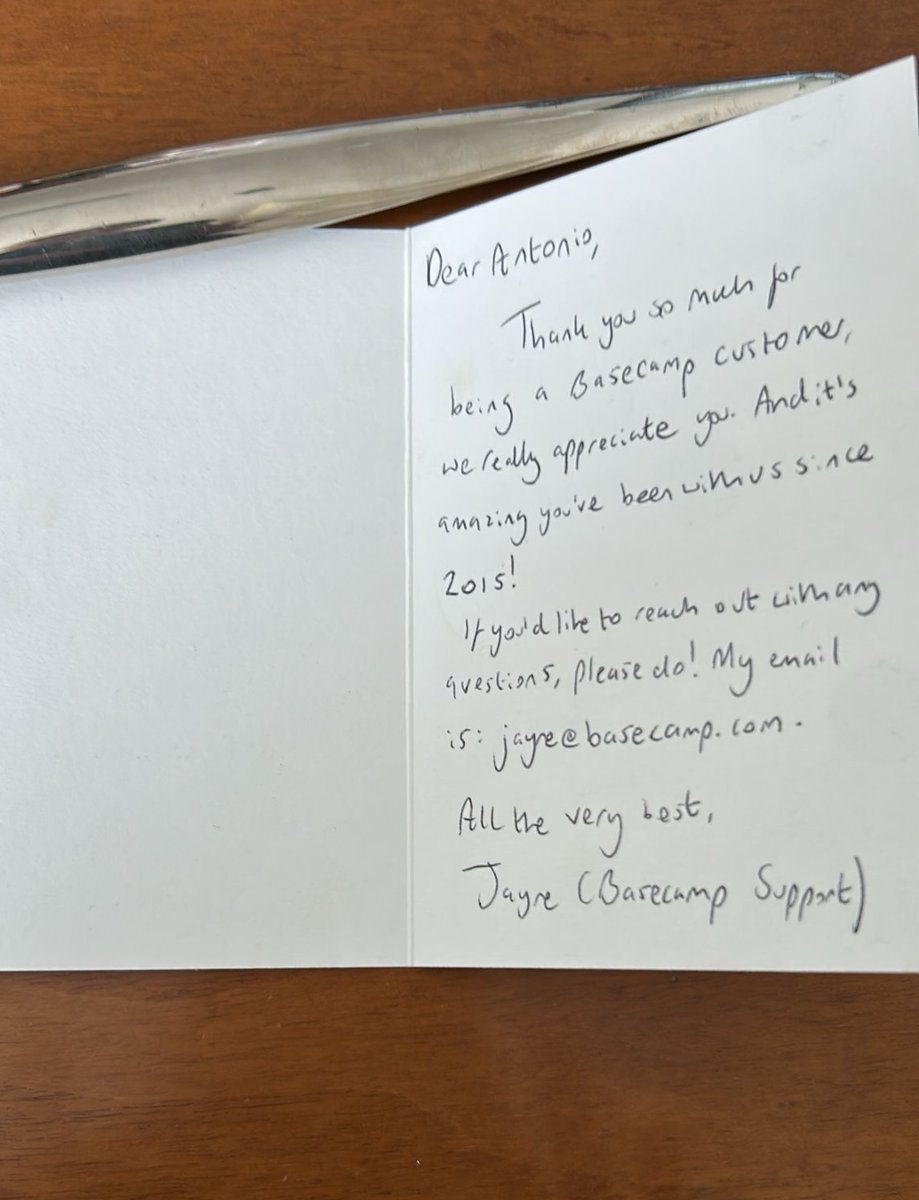 Dear Antonio,
Thank you so much for
being a Basecamp customer,
we really appreciate you. And it's
amazing you've been with us since
2015!
If you'd like to reach out with any
questions, please do! My email
is: jayne@basecamp.com.
All the very best,
Jayne (Basecamp Support)